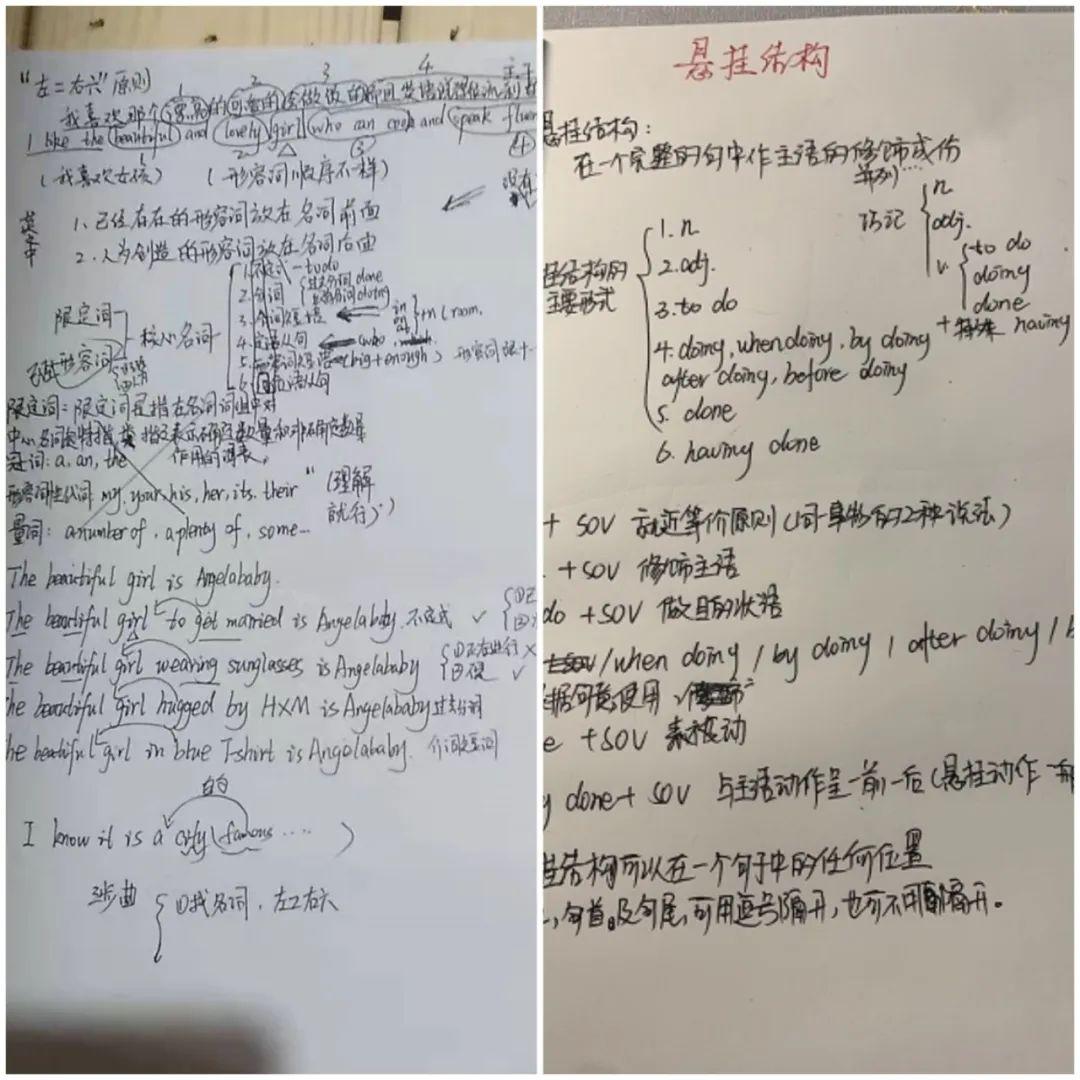 "左二右六"原则
1 2 3 4
我喜欢那个漂亮的可爱的会做饭的
I like the beautiful and lovely girl who can cook and speak fluen
(我喜欢女孩) (形容词顺序不一样)
没有
英文中
1、已经存在的形容词放在名词前面
2、人为创造的形容词放在名词后面
限定词
形容词
核心名词
1.不定式—to do
2.分词 过去分词 done 现在分词 doing
3.介词短语 in on +n (room.
4.定语从句 (who
5.形容词短语 (big+enough) 形容词
6.同位语从句
限定词:限定词是指在名词词组中对
中心名词起特指 类指 表示确定数量和非确定数量
冠词:a, an, the 作用的词表。
形容词性代词 my, your, his, her, its, their "(理解就行)"
量词: a number of, a plenty of, some...
The beautiful girl is Angelababy.
The beautiful girl to get married is Angelababy. 不定式 ✓
The beautiful girl wearing sunglasses is Angelababy ①正在进行 ×
② ✓
he beautiful girl hugged by HXM is Angelababy 过去分词
he beautiful girl in blue T-shirt is Angelababy. 介词短语
的
I know it is a city (famous ....)
步曲 ①找名词,左二右六
悬挂结构
悬挂结构:
在一个完整的句中作主语的修饰成份
并列...
巧记 n
adj.
v. to do
doing
done
+ 特殊 having
挂结构的主要形式
1. n
2. adj.
3. to do
4. doing, when doing, by doing
after doing, before doing
5. done
6. having done
+ SOV 就近等价原则(同一事物的2种说法)
. + SOV 修饰主语
do + SOV 做目的状语
/when doing / by doing / after doing / b
据句意使用
e + SOV 表被动
g done + SOV 与主语动作呈一前一后(悬挂动作
挂结构可以在一个句子中的任何位置
,句首。及句尾,可用逗号隔开,也可不用隔开。